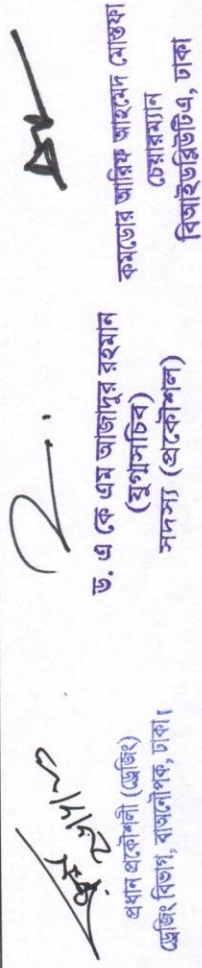 প্রধান প্রকৌশলী (ড্রেজিং)
ড্রেজিং বিভাগ, বাঅনৌপক, ঢাকা।
ড. এ কে এম আজাদুর রহমান
(যুগ্মসচিব)
সদস্য (প্রকৌশল)
কমডোর আরিফ আহমেদ মোস্তফা
চেয়ারম্যান
বিআইডব্লিউটিএ, ঢাকা